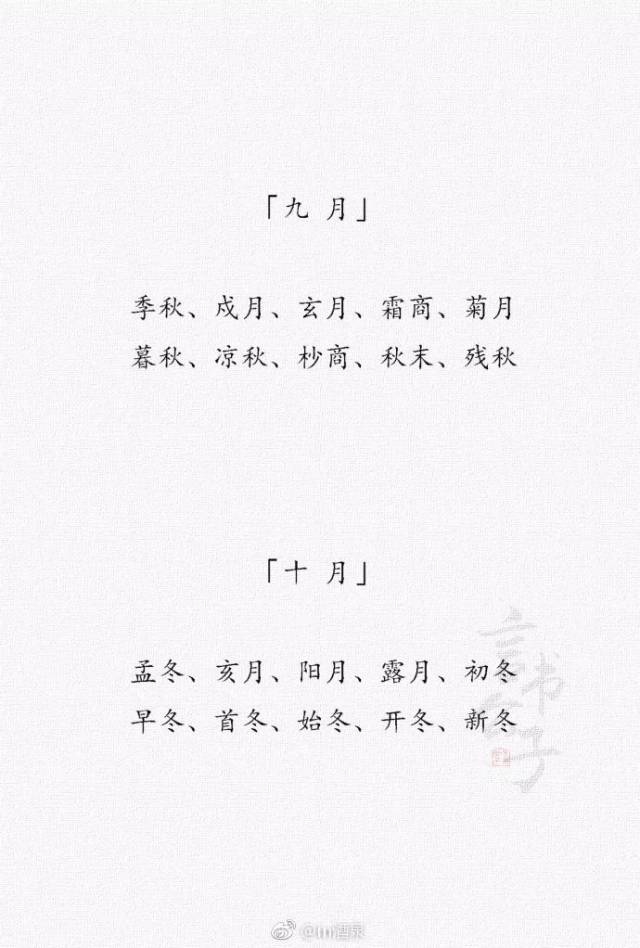 「九 月」
季秋、戍月、玄月、霜商、菊月
暮秋、凉秋、杪商、秋末、残秋
「十 月」
孟冬、亥月、阳月、露月、初冬
早冬、首冬、始冬、开冬、新冬
言书公子